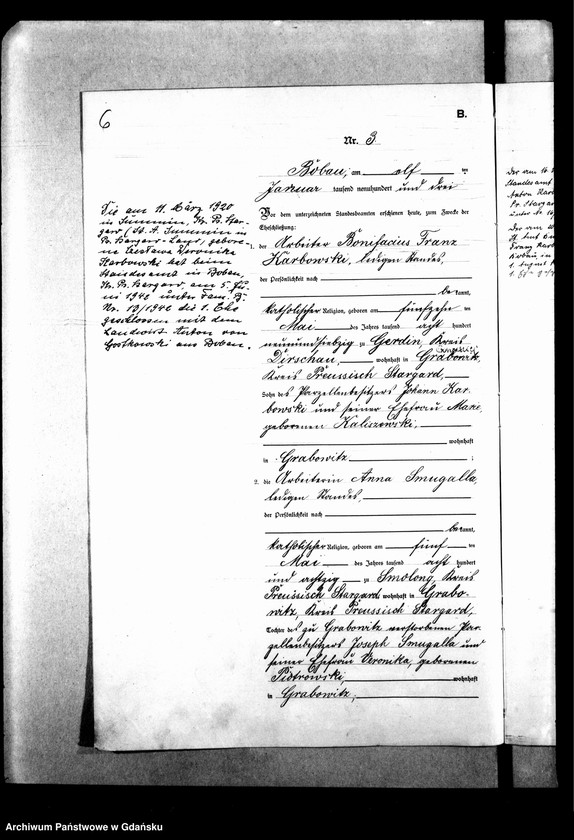 6
B.
Nr. 3
Bobau, am elf ten
Januar tausend neunhundert und drei
Vor dem unterzeichneten Standesbeamten erschienen heute, zum Zwecke der
Eheschließung:
1. der Arbeiter Bonifacius Franz
Karbowski, ledigen Standes,
der Persönlichkeit nach
bekannt,
katholischer Religion, geboren am fünfzehn ten
Mai des Jahres tausend acht hundert
neunundsiebzig zu Gerdin, Kreis
Dirschau, wohnhaft in Grabowitz,
Kreis Preussisch Stargard,
Sohn des Parzellenbesitzers Johann Kar-
bowski und seiner Ehefrau Marie,
geborenen Kaliszewski,
wohnhaft
in Grabowitz;
2. die Arbeiterin Anna Smugalla,
ledigen Standes,
der Persönlichkeit nach
bekannt,
katholischer Religion, geboren am fünf ten
Mai des Jahres tausend acht hundert
und achtzig zu Smolong, Kreis
Preussisch Stargard, wohnhaft in Grabo-
witz, Kreis Preussisch Stargard,
Tochter des zu Grabowitz verstorbenen Par-
zellenbesitzers Joseph Smugalla und
seiner Ehefrau Veronika, geborenen
Piotrowski, wohnhaft
in Grabowitz;
Die am 11. März 1920
in Summin, Kr. Pr. Star-
gard (St. A. Summin in
Pr. Stargard-Land, gebore-
ne Czeslawa Veronika
Karbowski hat beim
Standesamt in Bobau,
Kr. Pr. Stargard, am 5. Ju-
ni 1940 unter Fam. B.
Nr. 13/1940 die 1. Ehe
geschlossen mit dem
Landwirt Anton von
Gostkowski aus Bobau.
Der am 16.
Standesamt
Anton Kar
Pr. Stargar
unter Nr.
Der am
Franz Karb
1. August
Archiwum Państwowe w Gdańsku